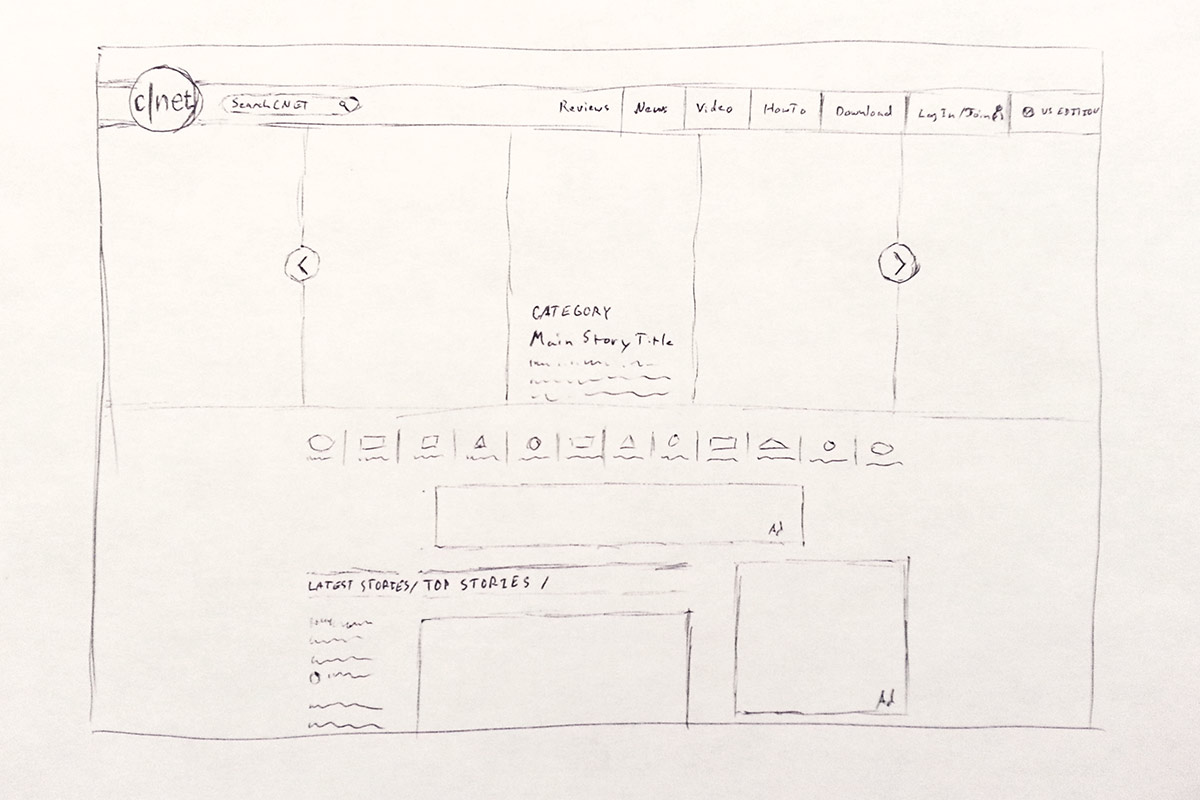 c|net
Search CNET
Reviews News Video HowTo Download Log In/Join US EDITION
CATEGORY
Main Story Title
Ad
LATEST STORIES/ TOP STORIES /
Ad